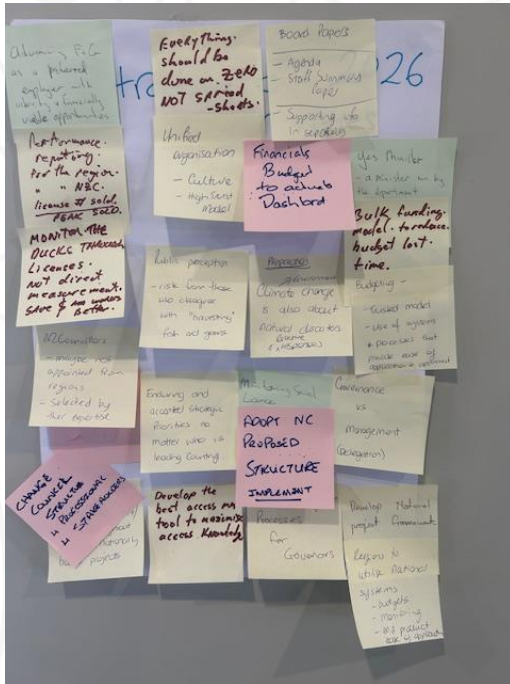 Advancing F&G
as a preferred
employer with
viable opportunities
Everything
should be
done on ZERO
NOT spread
-sheets.
Board Papers
- Agenda
- Staff Summary
Paper
- Supporting info
in separately
26
Performance
reporting
for the region.
" " NZC.
license # sold.
PEAK SOLD.
Unified
organisation
- Culture
- High trust
Model
Financials
Budget
to actuals
Dashbord
Yes Minister
- a minister run by
the department
Bulk funding
model. to reduce
budget lost
time.
MONITOR THE
DUCKS THROUGH
Licences.
NOT direct
measurement.
SAVE $ AND
Better.
Public perception
- risk from those
who disagree
with "harvesting"
fish and game
Climate change
is also about
natural disasters
Budgeting -
- Trusted model
- Use of systems
& processes that
provide ease of
NZ Councillors
- maybe not
appointed from
regions
- Selected by
their expertise
Enduring and
accepted strategic
Priorities no
matter who is
leading Country.
Monitoring Social
Licence
ADOPT NC
PROPOSED
STRUCTURE
IMPLEMENT
Governance
vs
Management
(Delegation)
CHANGE
COUNCIL
STRUCTURE
" PROFESSIONAL
" STAKEHOLDERS
projects
Develop the
best access
tool to maximise
access Knowledge
Processes
for
Governors
Develop National
project framework
Regions to
utilise National
systems
- budgets
- Monitoring